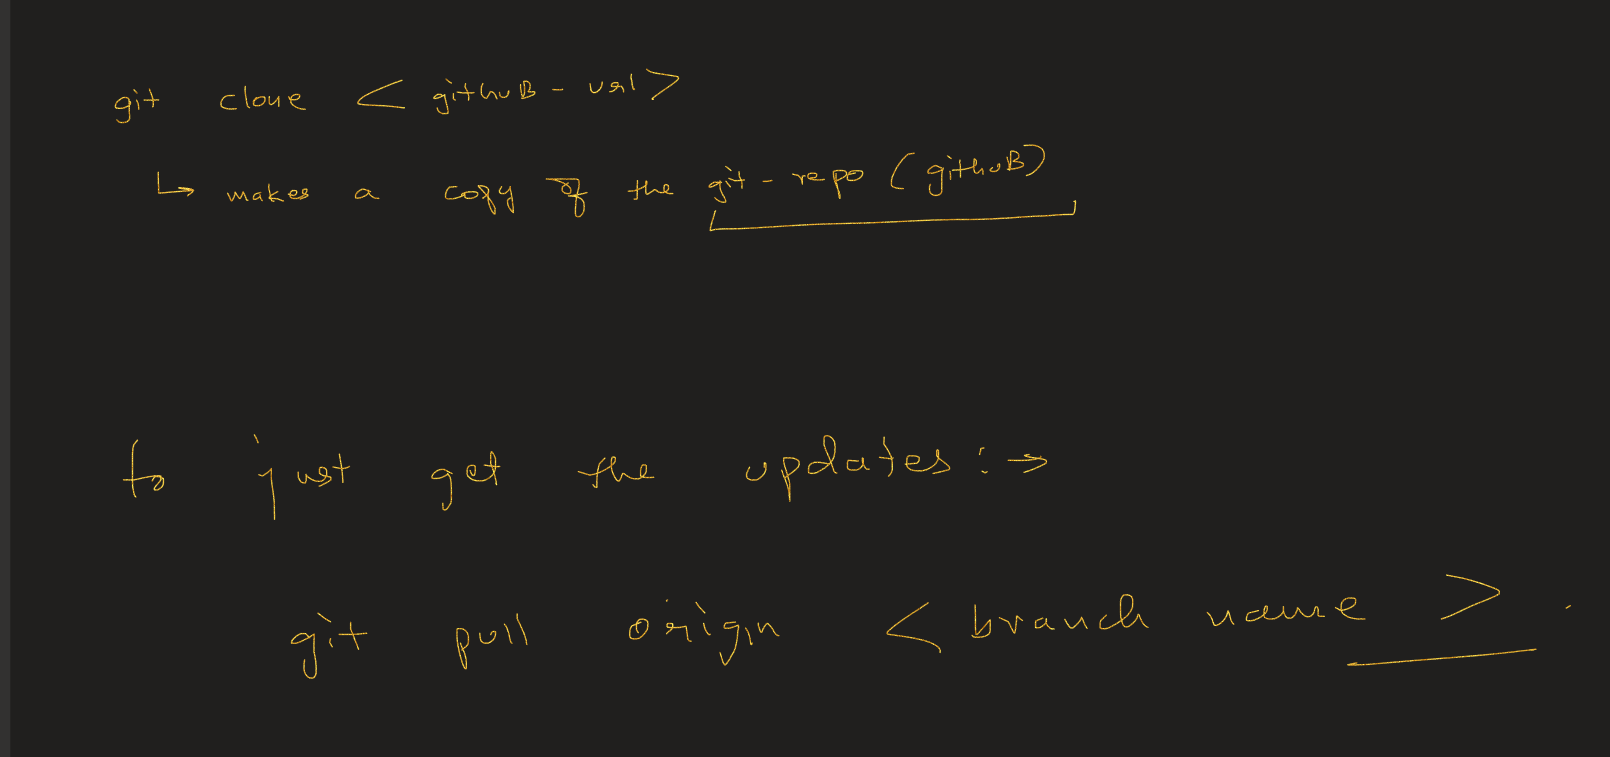 git clone < githuB - url>
↳ makes a copy of the git - repo (githuB)
to just get the updates : →
git pull origin < branch name > .